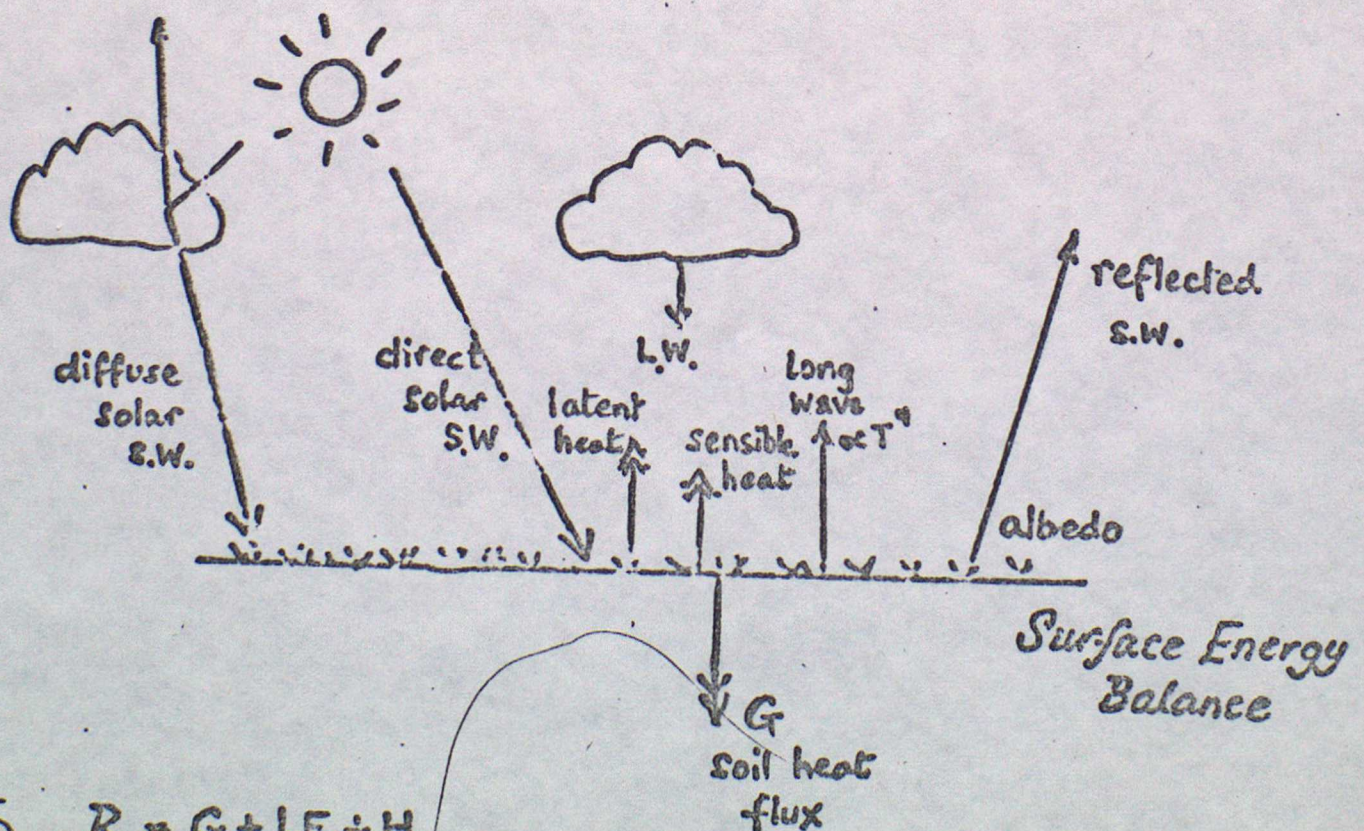 diffuse
solar
S.W.
direct
solar
S.W.
latent
heat
L.W.
sensible
heat
long
wave
∝T⁴
reflected
S.W.
albedo
Surface Energy
Balance
G
soil heat
flux
R = G + LE + H